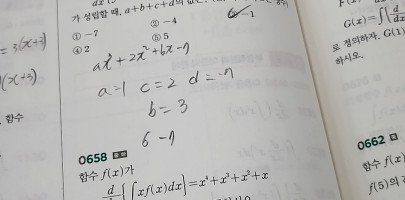 가 성립할 때, a+b+c+d의
① -7 ② -4 -1
④ 2 ⑤ 5
= 3(x+3)
(x+3)
ax³+2x²+bx-7
a=1 c=2 d=-7
b=3
6-7
함수
0658
함수 f(x)가
d/dx{∫xf(x)dx}=x⁴+x³+x²+x
G(x)=∫{d
로 정의하자. G(1)
하시오.
0662
함수 f(x)
f(5)의